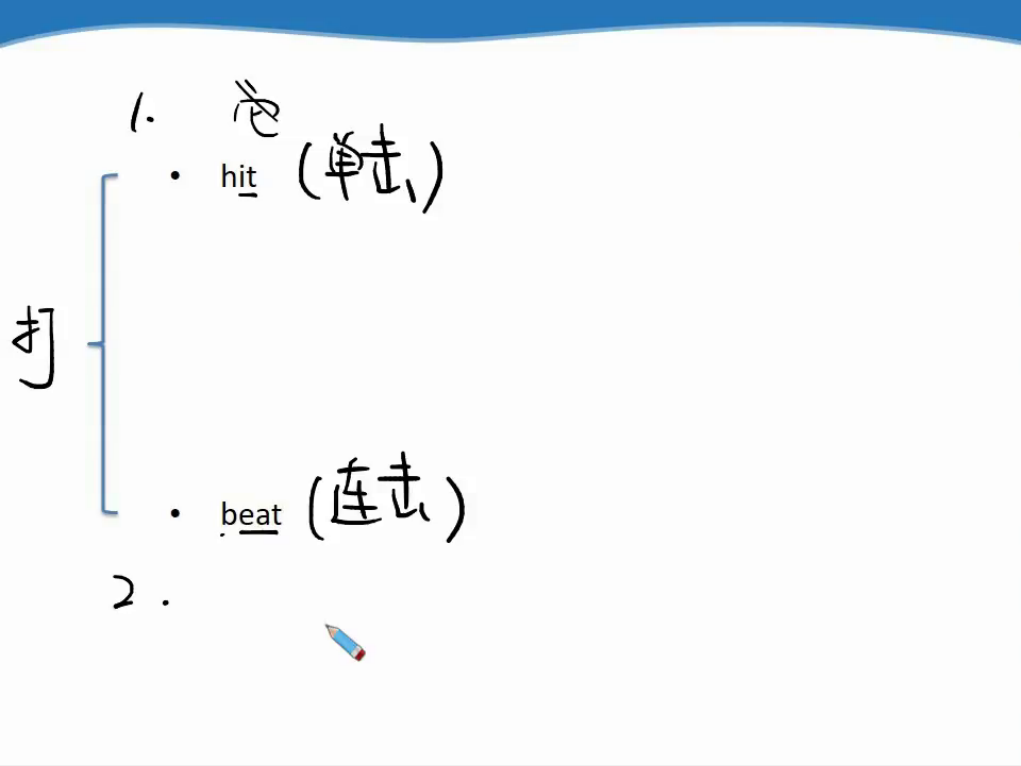 1.
• hit (单击)
打
• beat (连击)
2.